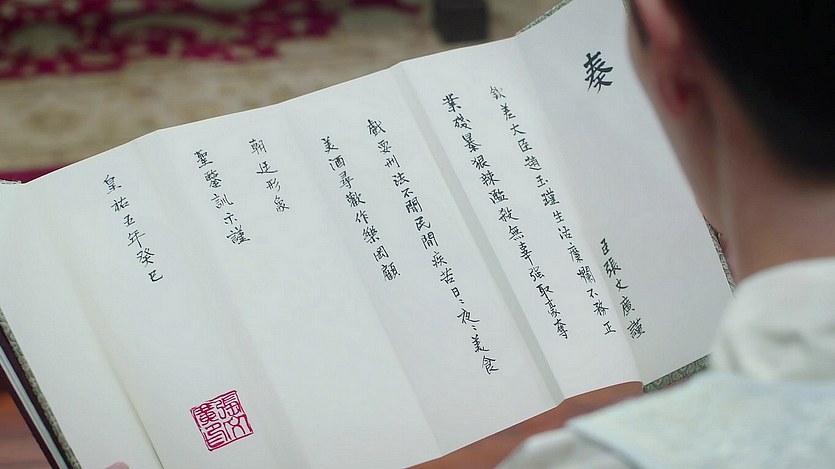 奏
臣張文廣謹
欽差大臣趙玉瑾生活糜爛不務正
業殘暴狠辣濫殺無辜强取豪奪
戲耍刑法不聞民間疾苦日〻夜〻美食
美酒尋歡作樂罔顧
朝廷形象
聖鑒訓示謹
皇祐五年癸巳
張文廣印